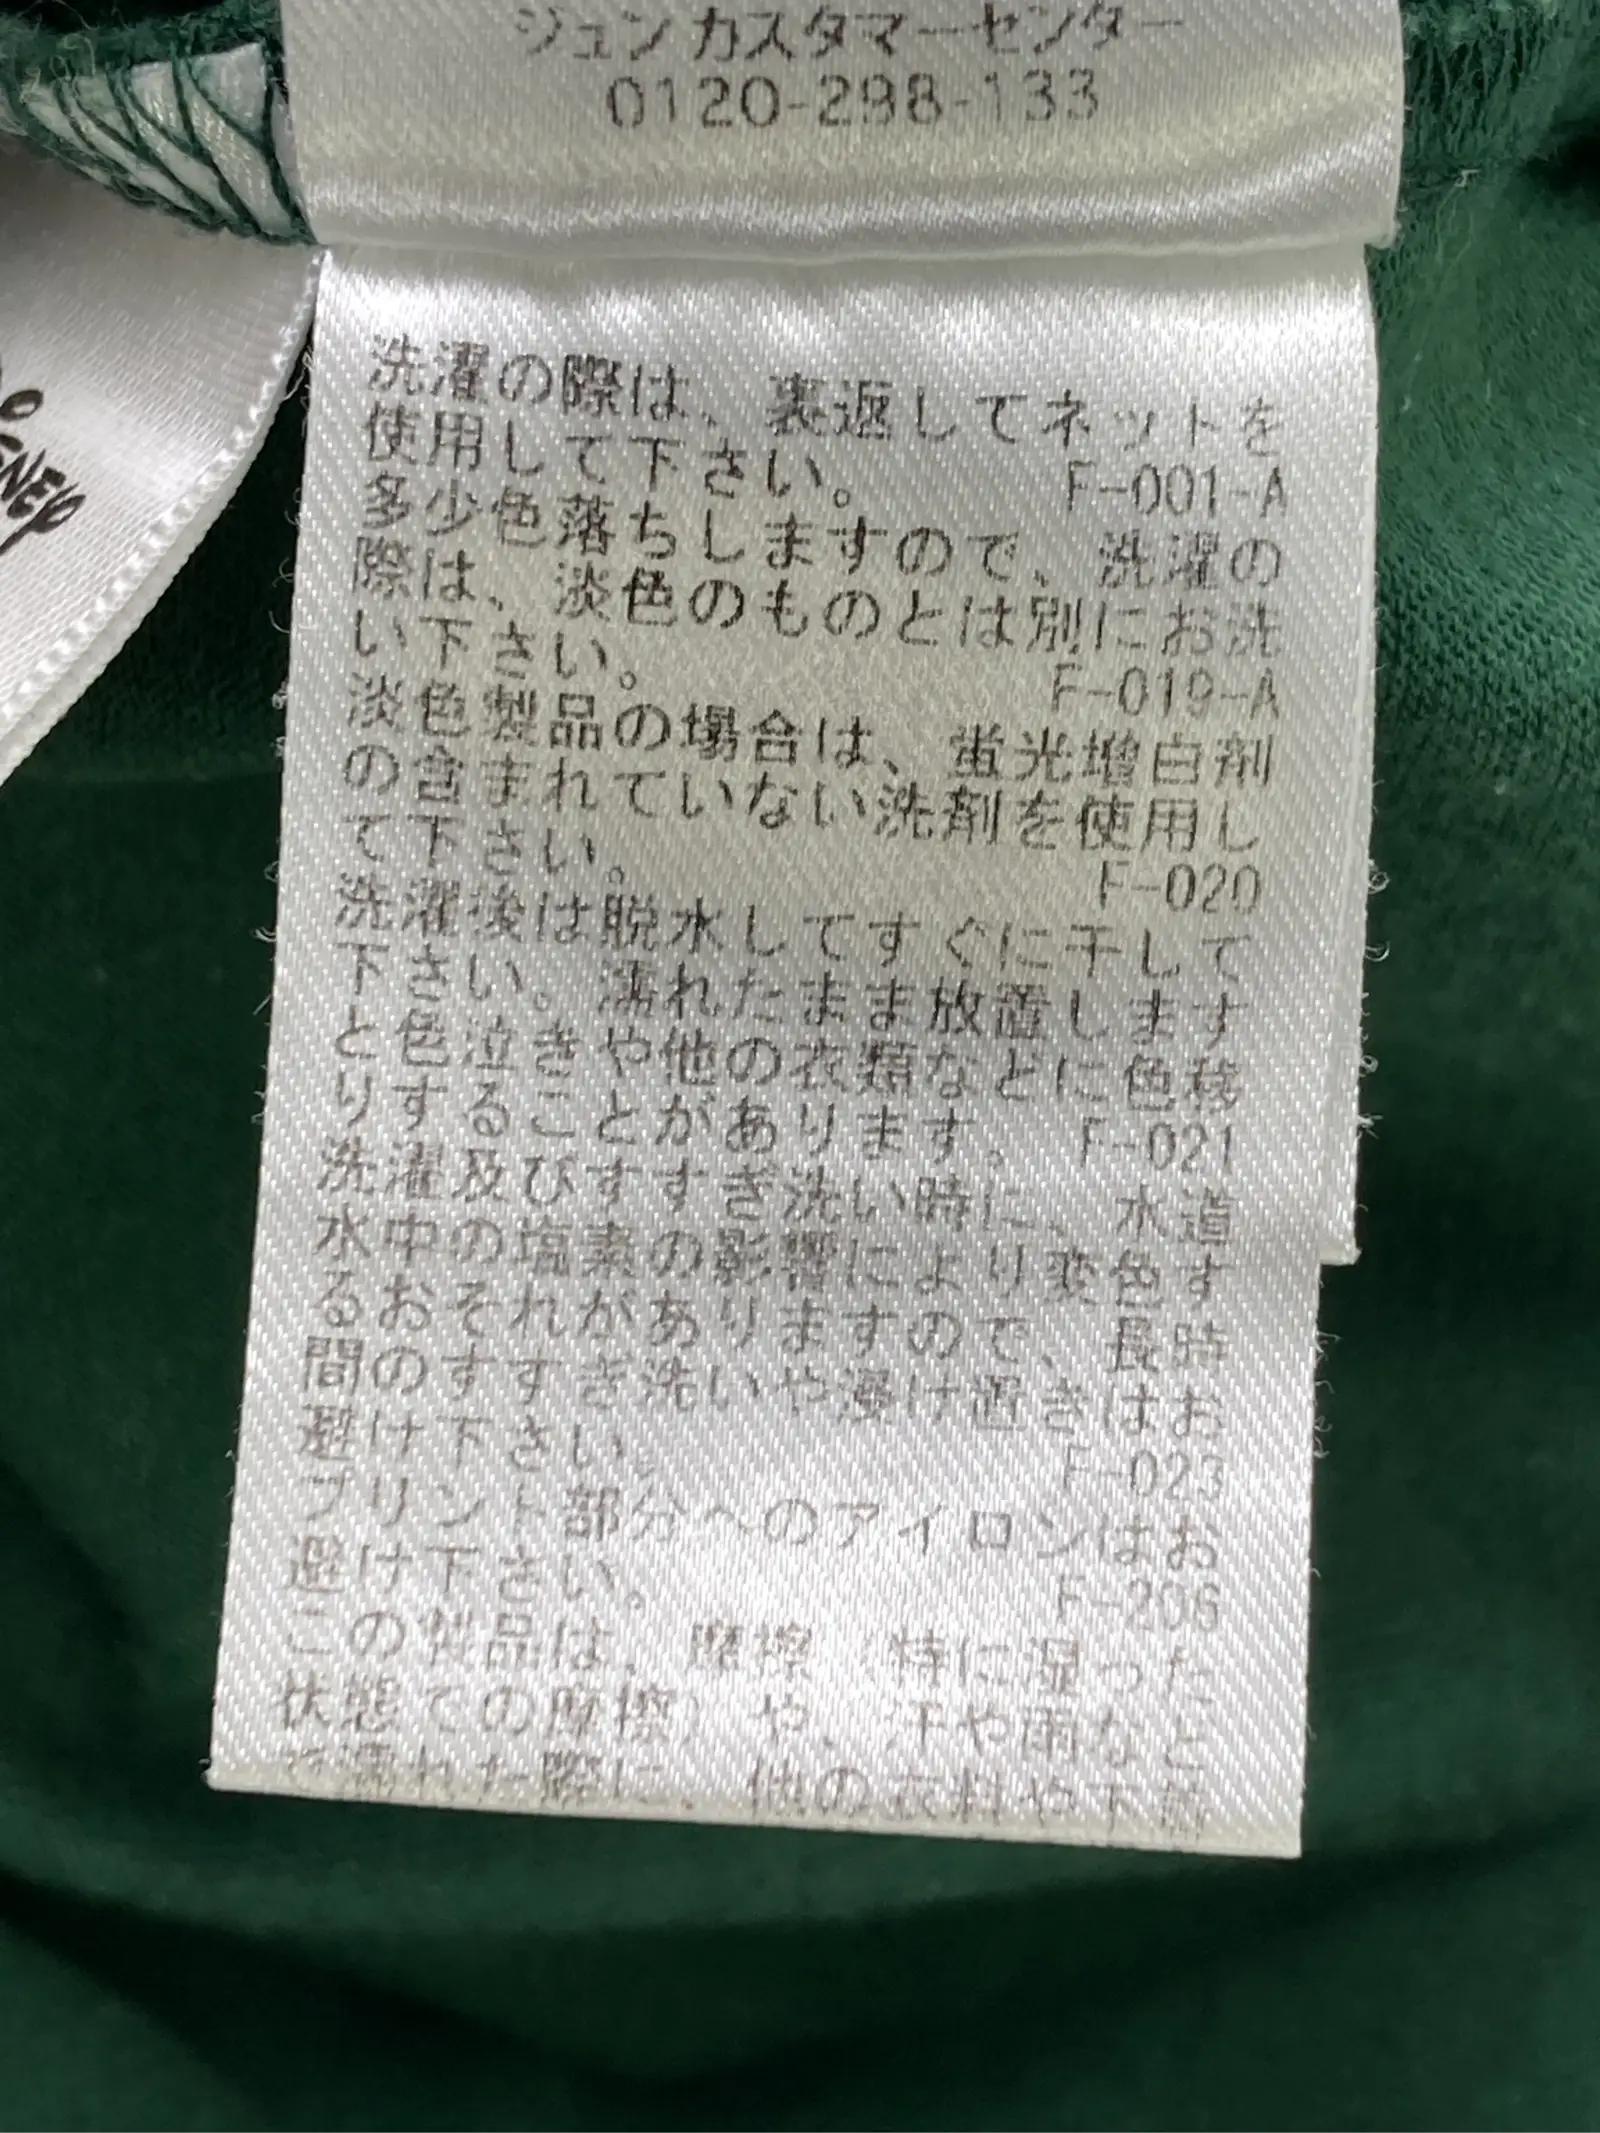 ジュンカスタマーセンター
0120-298-133
DISNEY
洗濯の際は、裏返してネットを
使用して下さい。 F-001-A
多少色落ちしますので、洗濯の
際は、淡色のものとは別にお洗
い下さい。 F-019-A
淡色製品の場合は、蛍光増白剤
の含まれていない洗剤を使用し
て下さい。 F-020
洗濯後は脱水してすぐに干して
下さい。濡れたまま放置します
と色泣きや他の衣類などに色移
りすることがあります。 F-021
洗濯及びすすぎ洗い時に、水道
水中の塩素の影響により変色す
るおそれがありますので、長時
間のすすぎ洗いや浸け置きはお
避け下さい。 F-023
プリント部分へのアイロンはお
避け下さい。 F-206
この製品は、摩擦(特に湿った
状態での摩擦)や、汗や雨など
で濡れた際に、他の衣料や下着